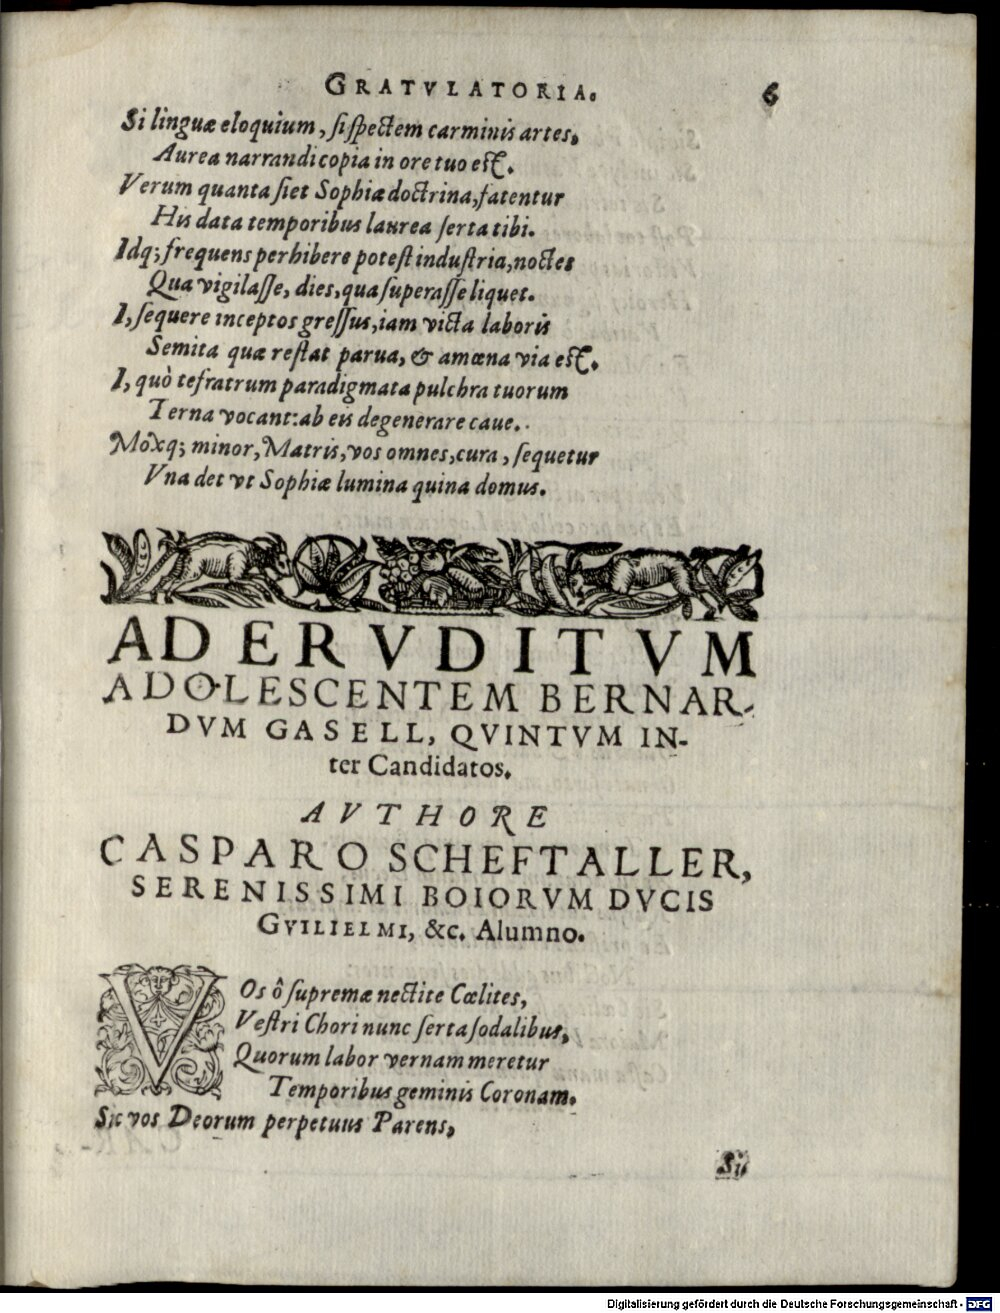 GRATVLATORIA. 6
Si linguæ eloquium, ſi ſpectem carminis artes,
Aurea narrandi copia in ore tuo eſt.
Verum quanta ſiet Sophiæ doctrina, fatentur
His data temporibus laurea ſerta tibi.
Idq; frequens perhibere poteſt induſtria, noctes
Qua vigilaſſe, dies, qua ſuperaſſe liquet.
I, ſequere inceptos greſſus, iam victa laboris
Semita quæ reſtat parua, & amœna via eſt.
I, quò te fratrum paradigmata pulchra tuorum
Terna vocant: ab eis degenerare caue.
Moxq; minor, Matris, vos omnes, cura, ſequetur
Vna det vt Sophiæ lumina quina domus.
AD ERVDITVM
ADOLESCENTEM BERNAR-
DVM GASELL, QVINTVM IN-
ter Candidatos.
AVTHORE
CASPARO SCHEFTALLER,
SERENISSIMI BOIORVM DVCIS
GVILIELMI, &c. Alumno.
VOs ô ſupremæ nectite Cœlites,
Veſtri Chori nunc ſerta ſodalibus,
Quorum labor vernam meretur
Temporibus geminis Coronam.
Sic vos Deorum perpetuus Parens,
Sij
Digitalisierung gefördert durch die Deutsche Forschungsgemeinschaft - DFG